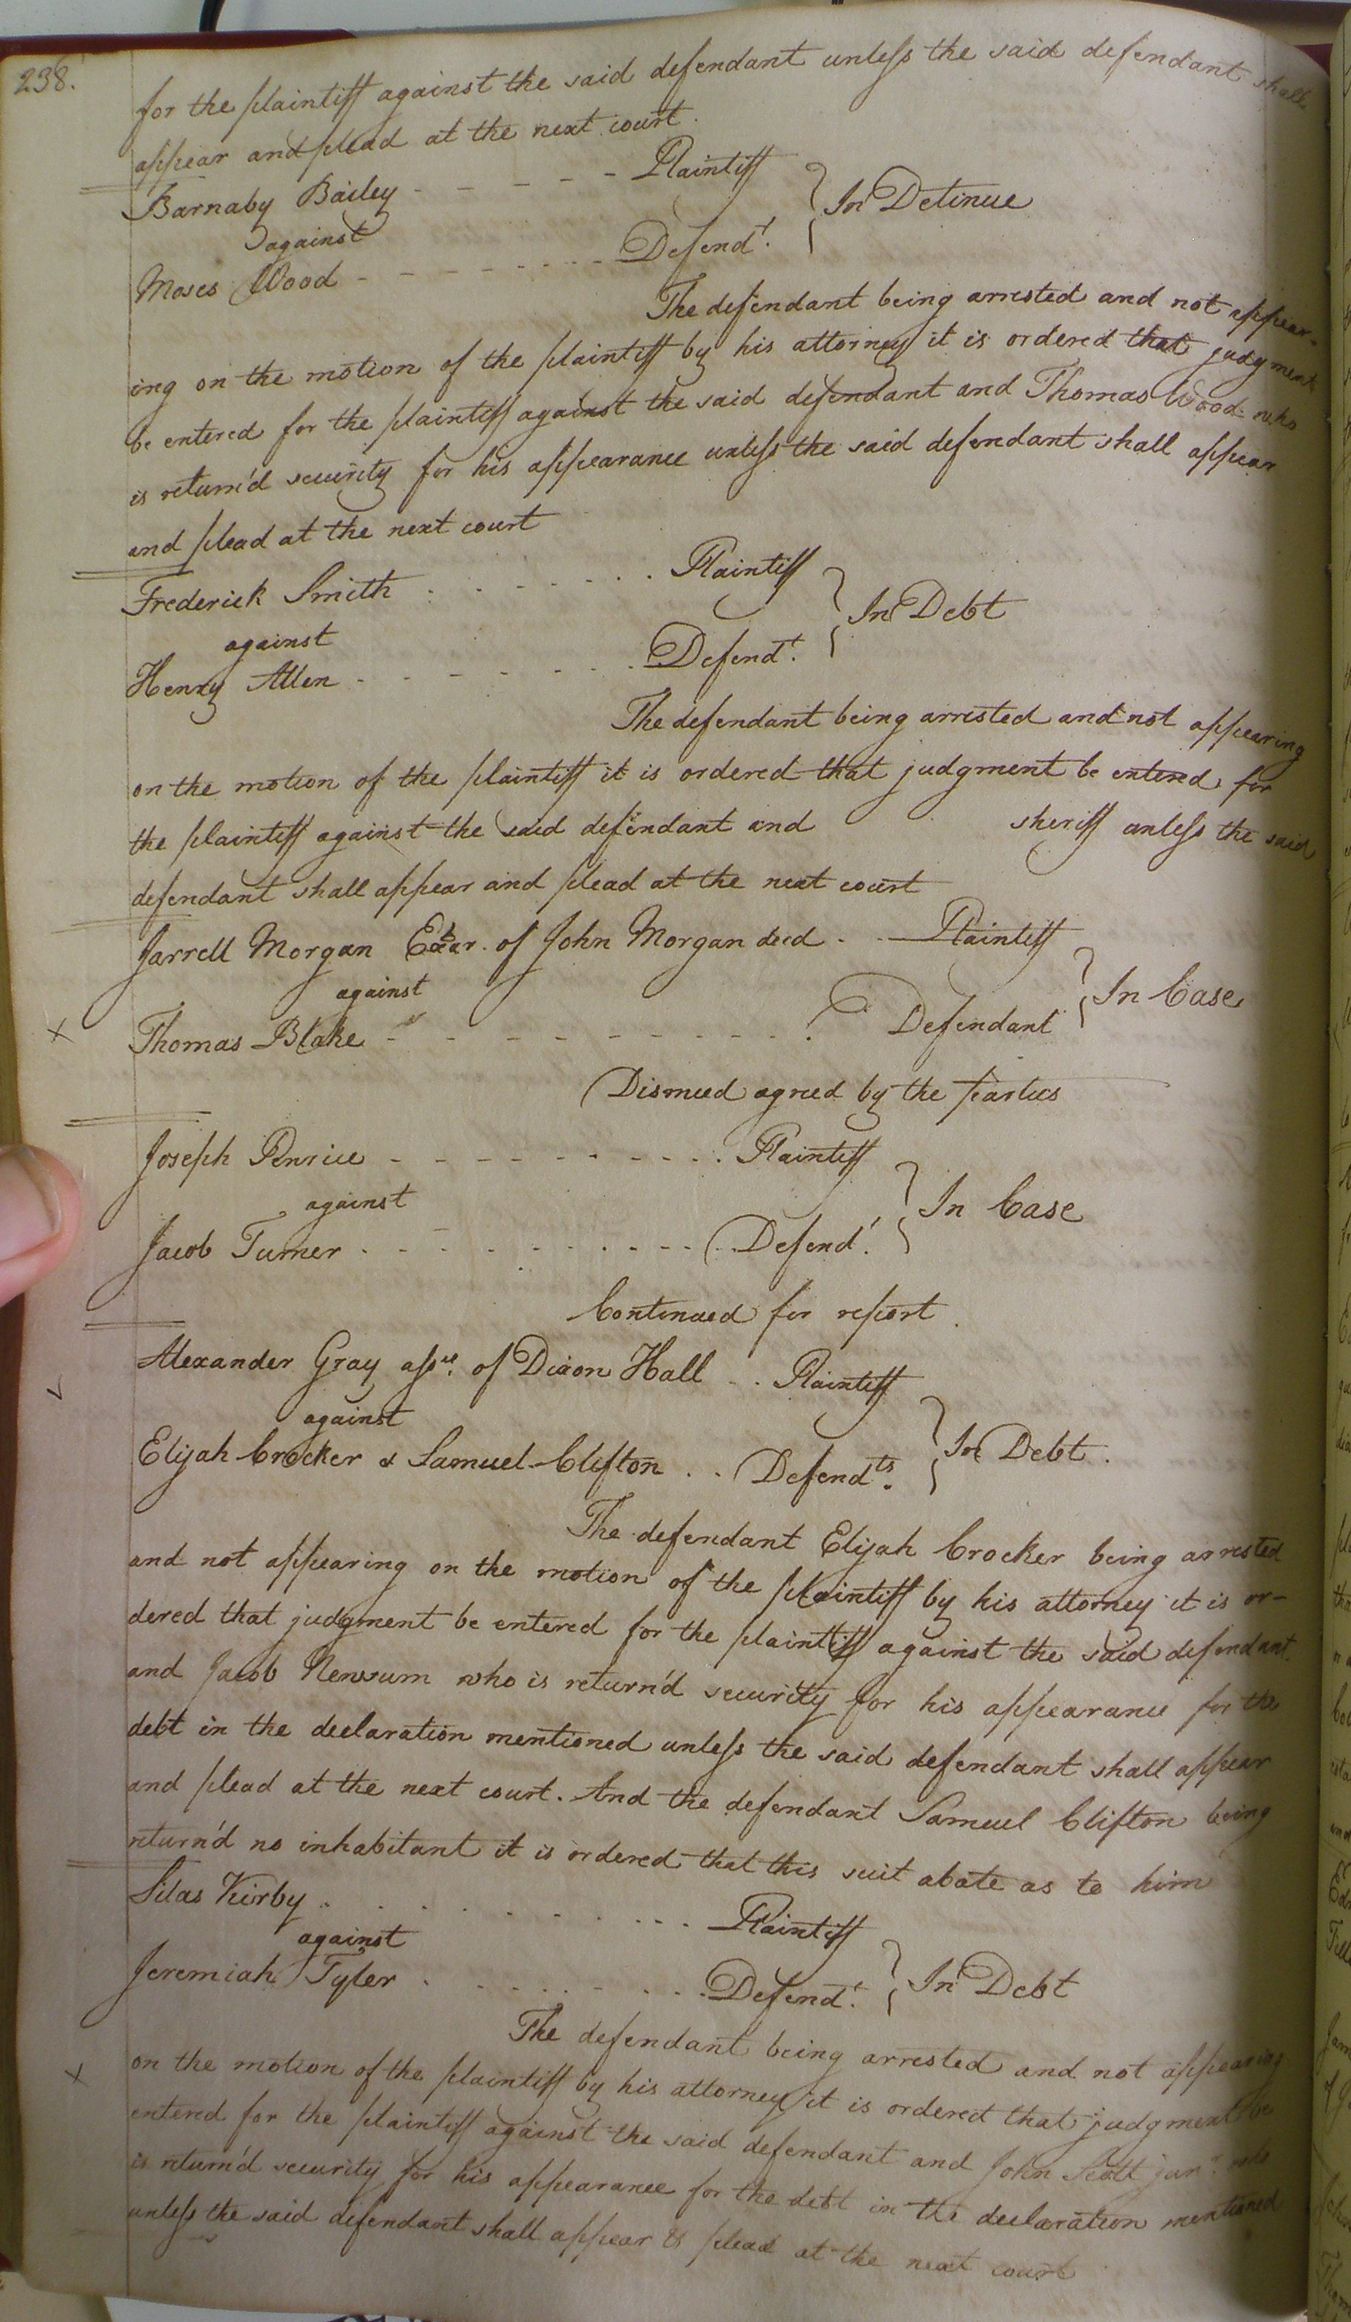 238.
for the plaintiff against the said defendant unless the said defendant shall
appear and plead at the next court.
Barnaby Bailey - - - - - Plaintiff
against } In Detinue
Moses Wood - - - - - - - - Defendt.
The defendant being arrested and not appear-
ing on the motion of the plaintiff by his attorney it is ordered that judgment
be entered for the plaintiff against the said defendant and Thomas Wood who
is return'd security for his appearance unless the said defendant shall appear
and plead at the next court
Frederick Smith . - - - - . . Plaintiff
against } In Debt
Henry Allen - - - - - - - Defendt.
The defendant being arrested and not appearing
on the motion of the plaintiff it is ordered that judgment be entered for
the plaintiff against the said defendant and sheriff unless the said
defendant shall appear and plead at the next court
Jarrell Morgan of John Morgan decd . . Plaintiff
against } In Case
Thomas Blake - - - - - - - - - - Defendant
Dismied agreed by the parties
Joseph Penrice - - - - - - - - - - . Plaintiff
against } In Case
Jacob Turner . - - - - - - - - - - Defendt.
Continued for report.
Alexander Gray assee. of Dixon Hall . . Plaintiff
against } In Debt.
Elijah Crocker & Samuel Clifton . . Defendts.
The defendant Elijah Crocker being arrested
and not appearing on the motion of the plaintiff by his attorney it is or-
dered that judgment be entered for the plaintiff against the said defendant
and Jacob Newsum who is return'd security for his appearance for the
debt in the declaration mentioned unless the said defendant shall appear
and plead at the next court. And the defendant Samuel Clifton being
return'd no inhabitant it is ordered that this suit abate as to him
Silas Kirby . . . . . . . . - - - Plaintiff
against } In Debt
Jeremiah Tyler . . . . . . - - . . Defendt.
The defendant being arrested and not appearing
on the motion of the plaintiff by his attorney it is ordered that judgment be
entered for the plaintiff against the said defendant and John Scott junr. who
is return'd security for his appearance for the debt in the declaration mentioned
unless the said defendant shall appear & plead at the next court